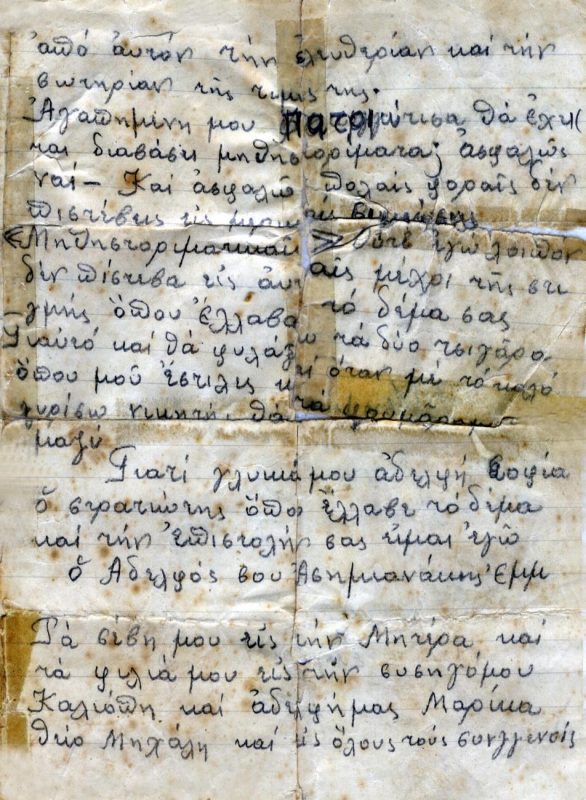 ἀπό ἀυτόν τήν ἐλευθερίαν καί τήν
σωτηρίαν τῆς τιμῆς της.
Ἀγαπημένη μου πατριώτισα θά ἔχης
και διαβάση μηθηστορίματα; ἀσφαλῶς
ναί – Καί ἀσφαλῶς πολαίς φοραίς δέν
πιστέβεις εἰς
«Μηθηστοριματικαί» Οὔτε ἐγώ λοιπόν
δέν πίστεβα εἰς ἀυταῖς μέχρι τῆς στι
γμής ὅπου ἔλλαβα τό δέμα σας
Γιαὐτό καί θά φυλάξω τά δύο τσιγάρα
ὅπου μοῦ ἔστιλες καί ὅταν μέ τό καλό
γυρίσω νικητής θά τά φουμάρωμε
μαζύ
Γιατί γλυκιά μου ἀδελφή Σοφία
ὁ στρατιώτης ὅπου ἔλλαβε τό δέμα
και τήν ἐπιστολήν σας εἶμαι ἐγώ
ὁ Ἀδελφός σου Ἀσημιανάκης Ἐμμ
Τά σέβη μου εἰς τήν Μητέρα και
τά φιλιά μου εἰς τήν συσηγόμου
Καλιόπη καί ἀδελφήμας Μαρίκα
θείο Μηχάλη καί εἰς ὅλους τούς συνγγενοῖς